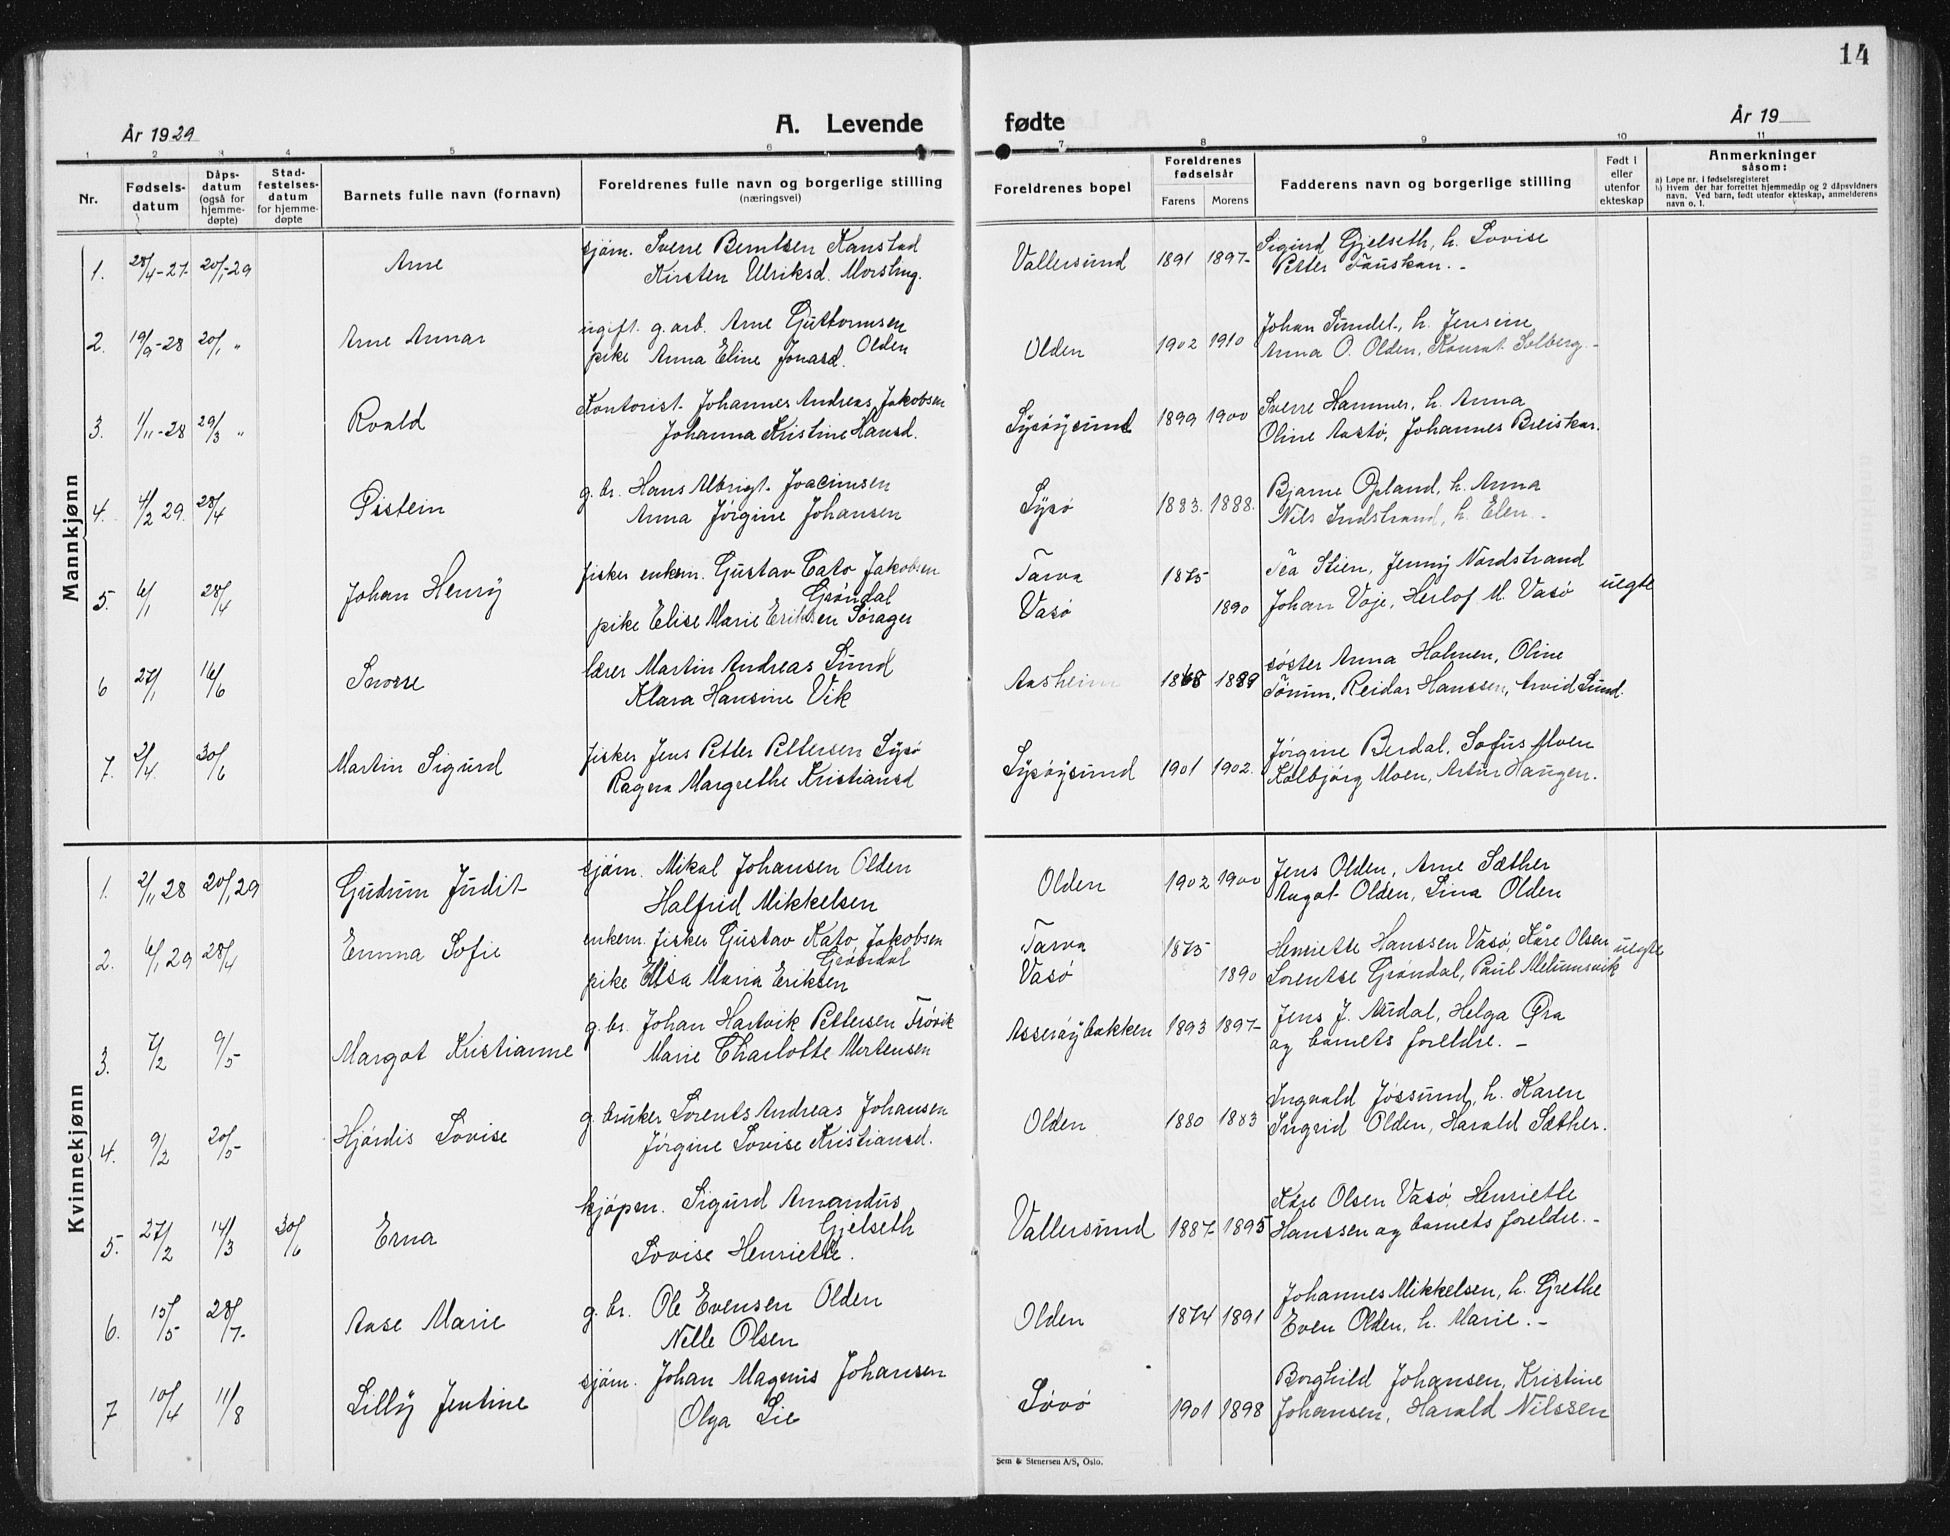 14
År 1929
A. Levende
fødte
År 19
1 2 3 4 5 6 7 8 9 10 11
Nr.
Fødsels-
datum
Dåps-
datum
(også for
hjemme-
døpte)
Stad-
festelses-
datum
for hjemme-
døpte
Barnets fulle navn (fornavn)
Foreldrenes fulle navn og borgerlige stilling
(næringsvei)
Foreldrenes bopel
Foreldrenes
fødselsår
Farens Morens
Fadderens navn og borgerlige stilling
Født i
eller
utenfor
ekteskap
Anmerkninger
såsom:
a) Løpe nr. i fødselsregisteret
b) Hvem der har forrettet hjemmedåp og 2 dåpsvidners
navn. Ved barn, født utenfor ekteskap, anmelderens
navn o. l.
Mannkjønn
1. 28/4-27 20/1-29 Arne sjøm. Sverre Berntsen Kanstad Vallersund 1891 1897 Sigurd Gjelseth, h. Lovise
Kirsten Ulriksd. Petter
2. 19/9-28 20/1 " Arne Annar ugift. g. arb. Arne Guttormsen Olden 1902 1910 Johan Sundet, h. Jensine
pike Anna Eline Jonasd. Olden Anna O. Olden, Konrat Solberg.
3. 1/11-28 29/3 " Roald Kontorist Johannes Andreas Jakobsen Lysøysund 1899 1900 Sverre Hammer, h. Anna
Johanna Kristine Hansd. Oline Aastø, Johannes Breiskar.
4. 4/2 29. 28/4 Øistein g. br. Hans Albrigt Joacimsen Lysø 1883. 1888. Bjarne Opland, h. Anna
Anna Jørgine Johansen Nils Indstrand, h. Elen
5. 6/1 28/4 Johan Henry fisker enkem. Gustav Cato Jakobsen Tarva 1875 Tea Stien, Jenny Nordstrand uegte
Grøndal
pike Elise Marie Eriksen Sørager Vasø 1890 Johan Voje, Herlof M. Vasø
6 27/1 16/6 Snorre lærer Martin Andreas Lund Aasheim 1868 1889 søster Anna Holmen, Oline
Klara Hansine Vik Reidar Hanssen, Arvid Lund.
7. 2/4. 30/6 Martin Sigurd fisker Jens Petter Pettersen Lysø Lysøysund 1901 1902. Jørgine Berdal, Sofus Moen
Ragna Margrethe Kristiansd Kolbjørg Moen, Artur Haugen.
Kvinnekjønn
1. 2/11 28 20/1 29 Gudrun Judit sjøm. Mikal Johansen Olden Olden 1902 1900 Jens Olden, Arne Sæther
Halfrid Mikkelsen Aagot Olden, Lina Olden
2. 6/1 29 28/4 Emma Sofie enkem. fisker Gustav Kato Jakobsen Tarva 1875 Henriette Hanssen Vasø, Kåre Olsen uegte
Grøndal
pike Elisa Maria Eriksen Vasø 1890 Lorentse Grøndal, Paul Melumsvik
3. 7/2 9/5 Margot Kristianne g. br. Johan Hartvik Pettersen Frøvik Asserøybakken 1893 1897 Jens J. Audal, Helga Øra
Marie Charlotte Mortensen og barnets foreldre.
4. 9/2 20/5 Hjørdis Lovise g. bruker Lorents Andreas Johansen Olden 1880 1883 Ingvald Jøssund, h. Karen
Jørgine Lovise Kristiansd. Ingrid Olden, Harald Sæther.
5. 27/2 14/3 30/6 Erna kjøpm. Sigurd Amandus Vallersund 1887 1895 Kåre Olsen Vasø, Henriette
Gjelseth
Lovise Henriette. Hanssen og barnets foreldre.
6. 15/5 28/7 Aase Marie g. br. Ole Evensen Olden Olden 1874 1891 Johannes Mikkelsen, h. Grethe
Nelle Olsen Even Olden, h. Marie.
7 10/4 11/8 Lilly Jentine sjøm. Johan Magnus Johansen Søvø 1901 1898 Borghild Johansen, Kristine
Olga Lie Johansen, Harald Nilssen
Sem & Stenersen A/S, Oslo.